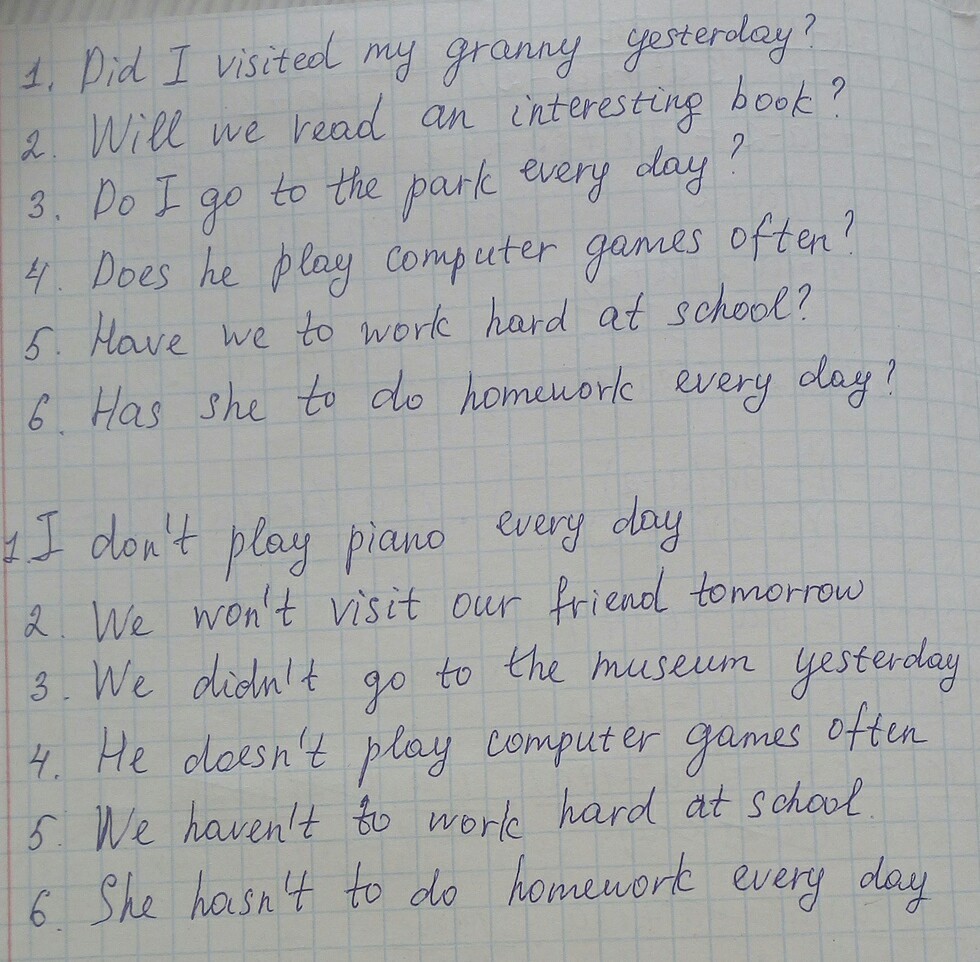 1. Did I visited my granny yesterday?
2. Will we read an interesting book?
3. Do I go to the park every day?
4. Does he play computer games often?
5. Have we to work hard at school?
6. Has she to do homework every day?
1. I don't play piano every day
2. We won't visit our friend tomorrow
3. We didn't go to the museum yesterday
4. He doesn't play computer games often
5. We haven't to work hard at school.
6. She hasn't to do homework every day